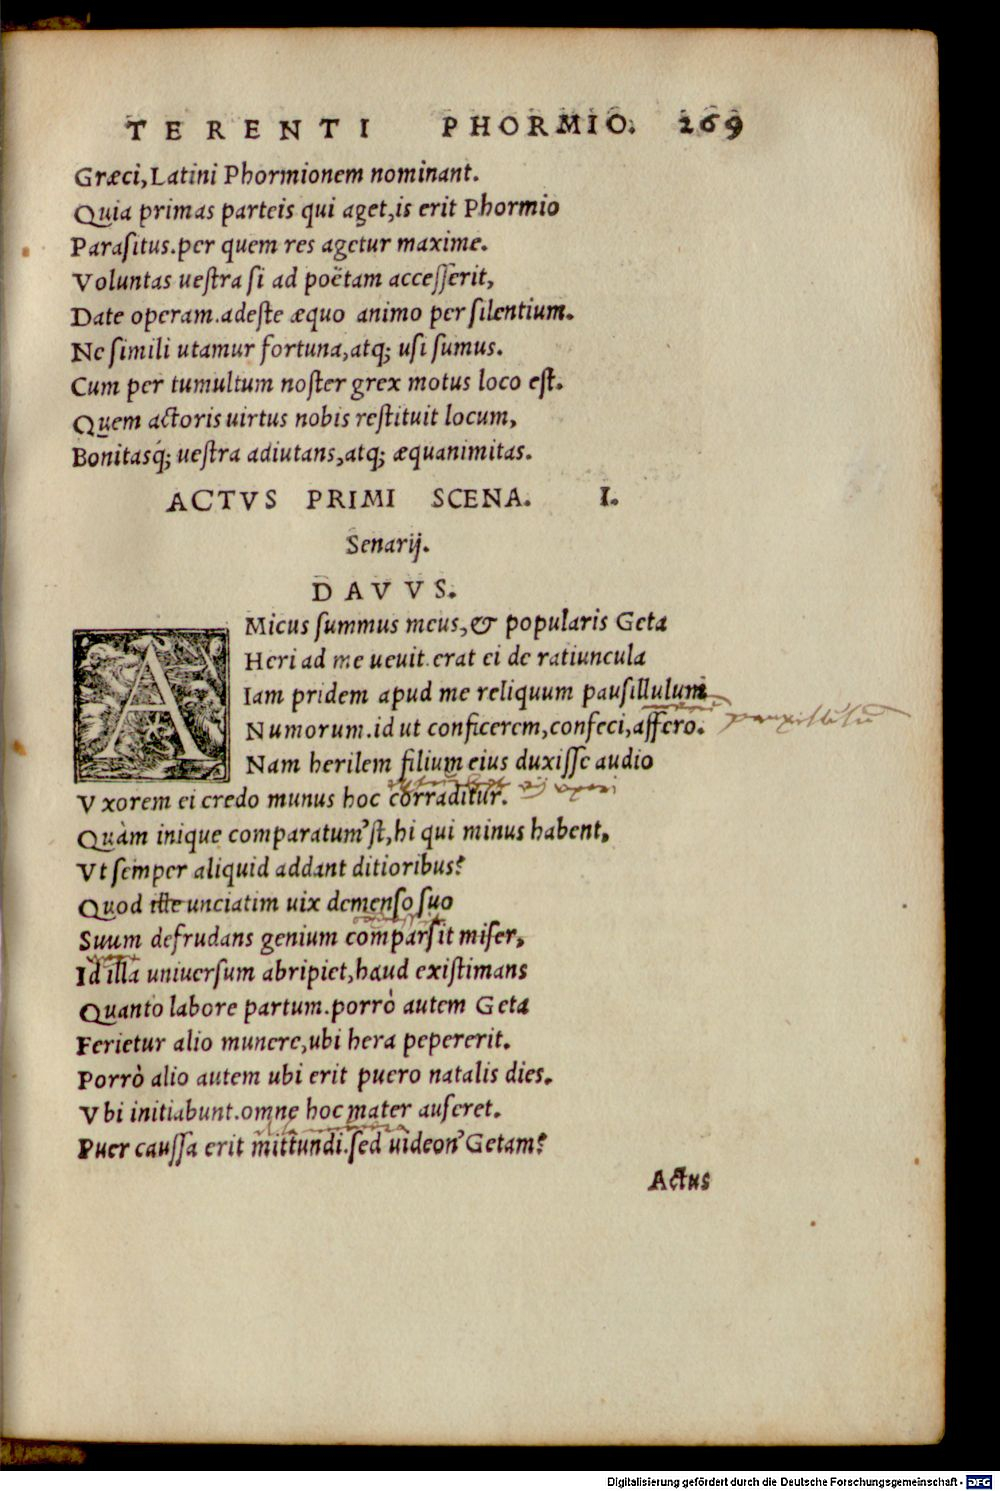 TERENTI PHORMIO. 269
Græci, Latini Phormionem nominant.
Quia primas parteis qui aget, is erit Phormio
Parasitus. per quem res agetur maxime.
Voluntas uestra si ad poëtam accesserit,
Date operam. adeste æquo animo per silentium.
Ne simili utamur fortuna, atq; usi sumus.
Cum per tumultum noster grex motus loco est.
Quem actoris uirtus nobis restituit locum,
Bonitasq́; uestra adiutans, atq; æquanimitas.
ACTVS PRIMI SCENA. I.
Senarij.
DAVVS.
AMicus summus meus, & popularis Geta
Heri ad me ueuit. erat ei de ratiuncula
Iam pridem apud me reliquum pausillulum
Numorum. id ut conficerem, confeci, affero. pauxillulū
Nam herilem filium eius duxisse audio
Vxorem ei credo munus hoc corraditur.
Quàm inique comparatum'st, hi qui minus habent,
Vt semper aliquid addant ditioribus?
Quod ille unciatim uix demenso suo
Suum defrudans genium comparsit miser,
Id illa uniuersum abripiet, haud existimans
Quanto labore partum. porrò autem Geta
Ferietur alio munere, ubi hera pepererit.
Porrò alio autem ubi erit puero natalis dies.
Vbi initiabunt. omne hoc mater auferet.
Puer caussa erit mittundi. sed uideon' Getam?
Actus
Digitalisierung gefördert durch die Deutsche Forschungsgemeinschaft - DFG